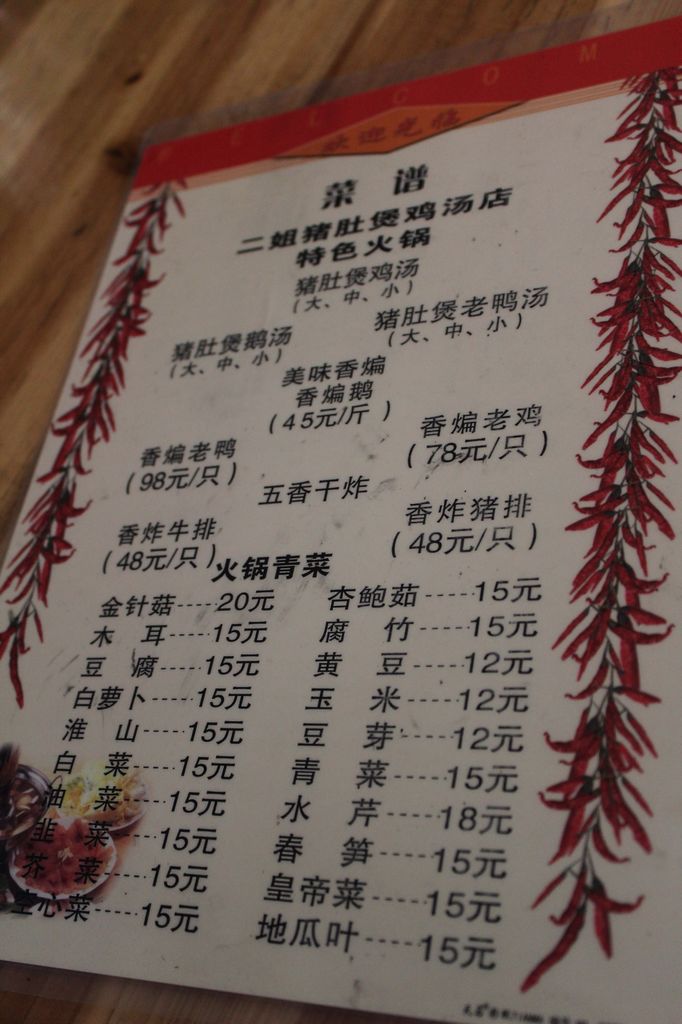 WELCOM
欢迎光临
菜 谱
二姐猪肚煲鸡汤店
特色火锅
猪肚煲鸡汤
(大、中、小)
猪肚煲鹅汤
(大、中、小)
猪肚煲老鸭汤
(大、中、小)
美味香煸
香煸鹅
(45元/斤)
香煸老鸭
(98元/只)
香煸老鸡
(78元/只)
五香干炸
香炸牛排
(48元/只)
香炸猪排
(48元/只)
火锅青菜
金针菇----20元 杏鲍茹-----15元
木 耳----15元 腐 竹-----15元
豆 腐----15元 黄 豆-----12元
白萝卜----15元 玉 米-----12元
淮 山----15元 豆 芽-----12元
白 菜----15元 青 菜-----15元
油 菜----15元 水 芹-----18元
韭 菜----15元 春 笋-----15元
芥 菜----15元 皇帝菜-----15元
空心菜----15元 地瓜叶-----15元